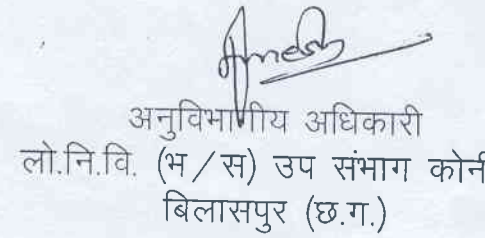 अनुविभागीय अधिकारी
लो.नि.वि. (भ/स) उप संभाग कोनी
बिलासपुर (छ.ग.)